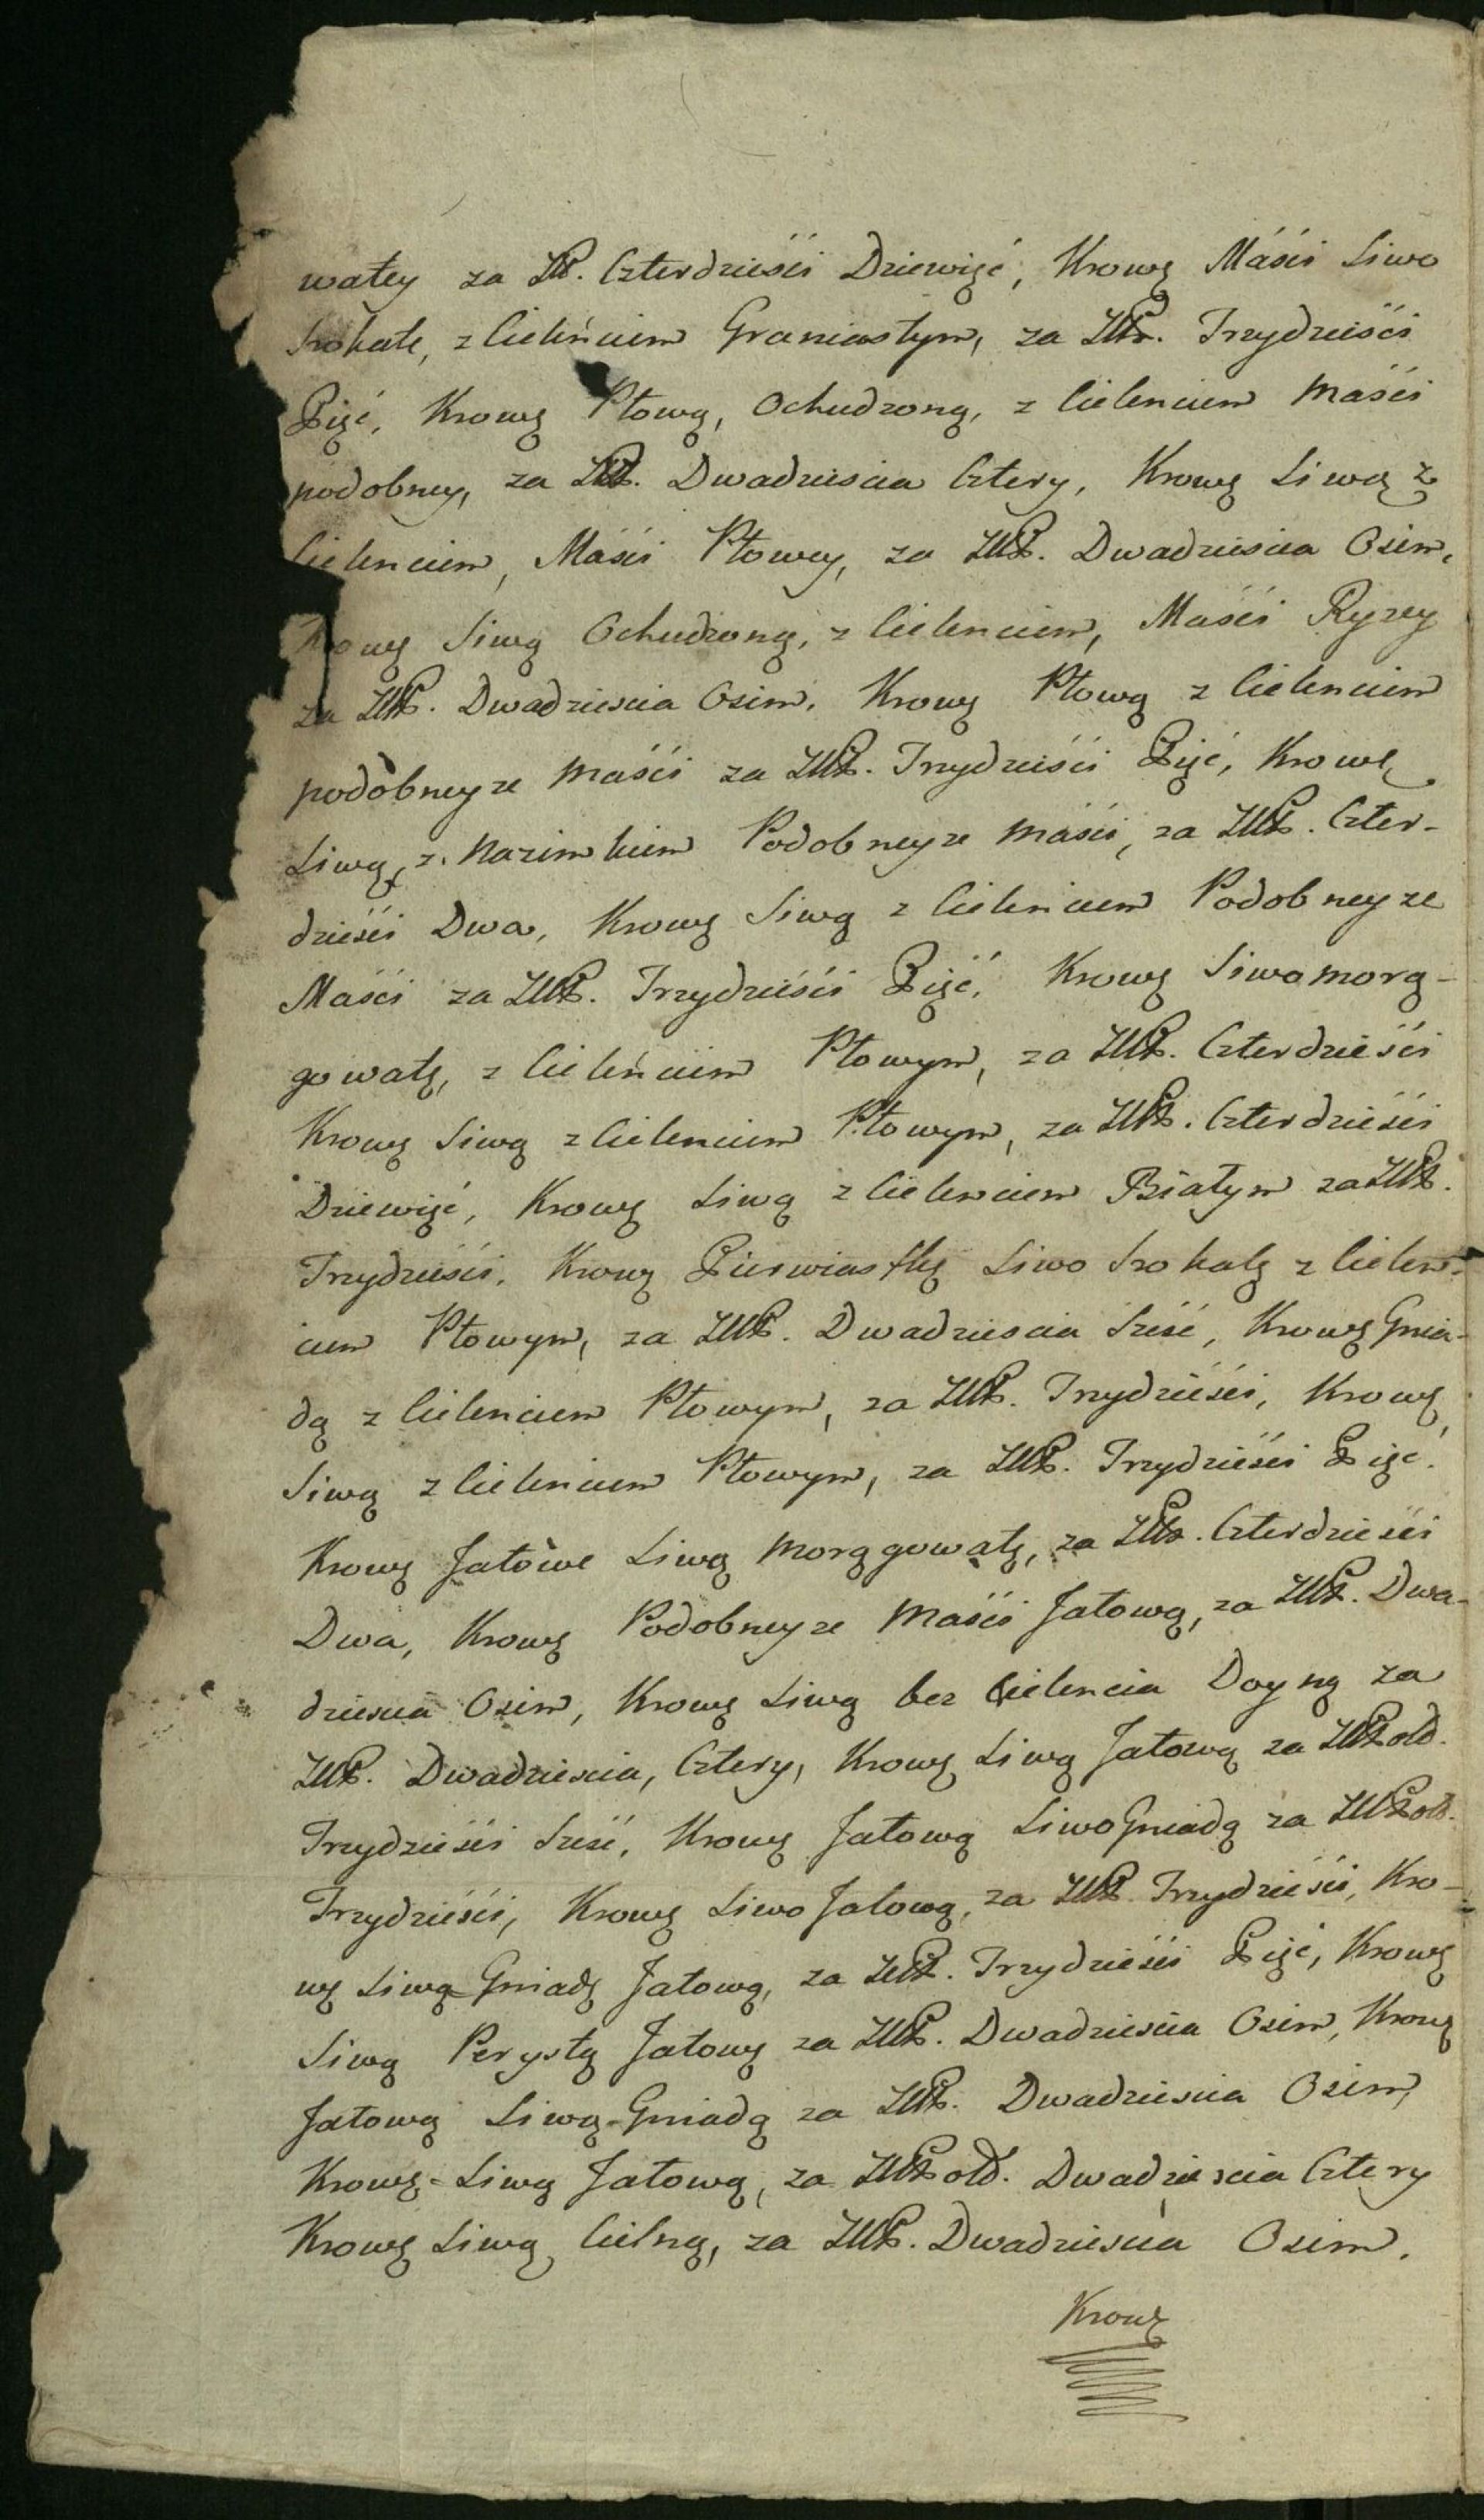 watey za ZłP. Czterdzieści Dziewięć, Krowę Máści Siwo
Srokate, z Cielęńciem Graniastym, za ZłP. Trzydzieści
Pięć, Krowę Płową, Ochudzoną, z Cielenciem Maści
podobney, za ZłP. Dwadziescia Cztery, Krowę Siwą z
Cielenciem, Maści Płowey, za ZłP. Dwadziescia Osim,
Krowę Siwą Ochudzoną, z Cielenciem, Maści Ryzey
za ZłP. Dwadziescia Osim. Krowę Płową z Cielenciem
podobneyze maści za ZłP. Trzydzieści Pięć, Krowę
Siwą, z. Nazimkiem Podobneyze maści, za ZłP. Czter-
dzieści Dwa, Krowę Siwą z Cielenciem Podobneyze
Maści za ZłP. Trzydzieści Pięć, Krowę Siwo morą-
gowatę, z Cieleńciem Płowym, za ZłP. Czterdzieści
Krowę Siwą z Cielenciem Płowym, za ZłP. Czterdzieści
Dziewięć, Krowę Siwą z Cielenciem Białym za ZłP.
Trzydzieści, Krowę Pierwiastkę Siwo Srokatę z Cielen-
ciem Płowym, za ZłP. Dwadziescia Sześć, Krowę Gnia-
dą z Cielenciem Płowym, za ZłP. Trzydzieści, Krowę
Siwą z Cielenciem Płowym, za ZłP. Trzydzieści Pięć.
Krowę Jałowe Siwą morągowatę, za ZłP. Czterdzieści
Dwa, Krowę Podobneyze Maści Jałową, za ZłP. Dwa-
dziescia Osim, Krowę Siwą bez Cielencia Doyną za
ZłP. Dwadziescia, Cztery, Krowę Siwą Jałową za ZłPold.
Trzydzieści Sześć, Krowę Jałową Siwo Gniadą za ZłPol.
Trzydzieści, Krowę Siwo Jałową, za ZłP. Trzydzieści, Kro-
wę Siwą Gniadę Jałową, za ZłP. Trzydzieści Pięć, Krowę
Siwą Perystą Jałowę za ZłP. Dwadziescia Osim, Krowę
Jałową Siwą-Gniadą za ZłP. Dwadziescia Osim,
Krowę-Siwą Jałową, za ZłPold. Dwadziescia Cztery
Krowę Siwą Cielną, za ZłP. Dwadziescia Osim.
Krowę